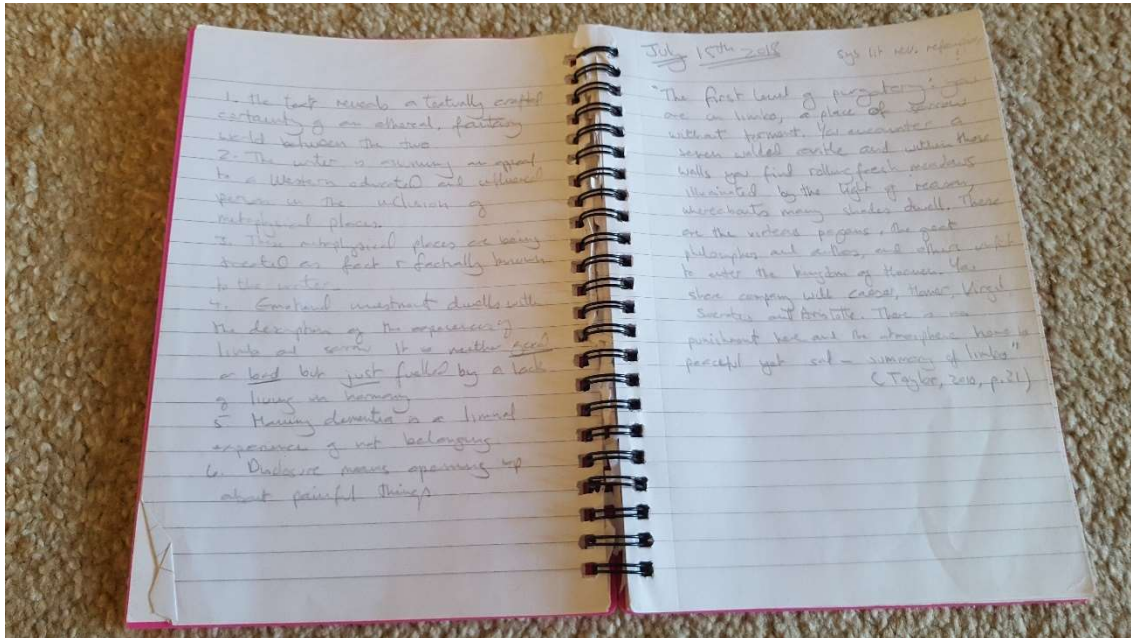 1. The text reveals a textually crafted
certainty of an ethereal, fantasy
world between the two
2. The writer is assuming an appeal
to a Western educated and influenced
person in the inclusion of
metaphysical places.
3. These metaphysical places are being
treated as fact & factually known
to the writer.
4. Emotional investment dwells with
the description of the experiencing
limbo and sorrow. It is neither good
or bad but just fuelled by a lack
of living in harmony
5. Having dementia is a liminal
experience of not belonging
6. Disclosure means openning up
about painful things
July 15th 2018
sys lit rev.
"The first level of purgatory: you
are in limbo, a place of sorrow
without torment. You encounter a
seven walled castle and within those
walls you find rolling fresh meadows
illuminated by the light of reason,
whereabouts many shades dwell. These
are the virtous pagans, the great
philosophers and authors, and others
to enter the kingdom of Heaven. You
share company with Caesar, Homer, Virgil,
Socrates and Aristotle. There is no
punishment here and the atmosphere
peaceful yet sad – summary of limbo"
(Taylor, 2010, p.21)